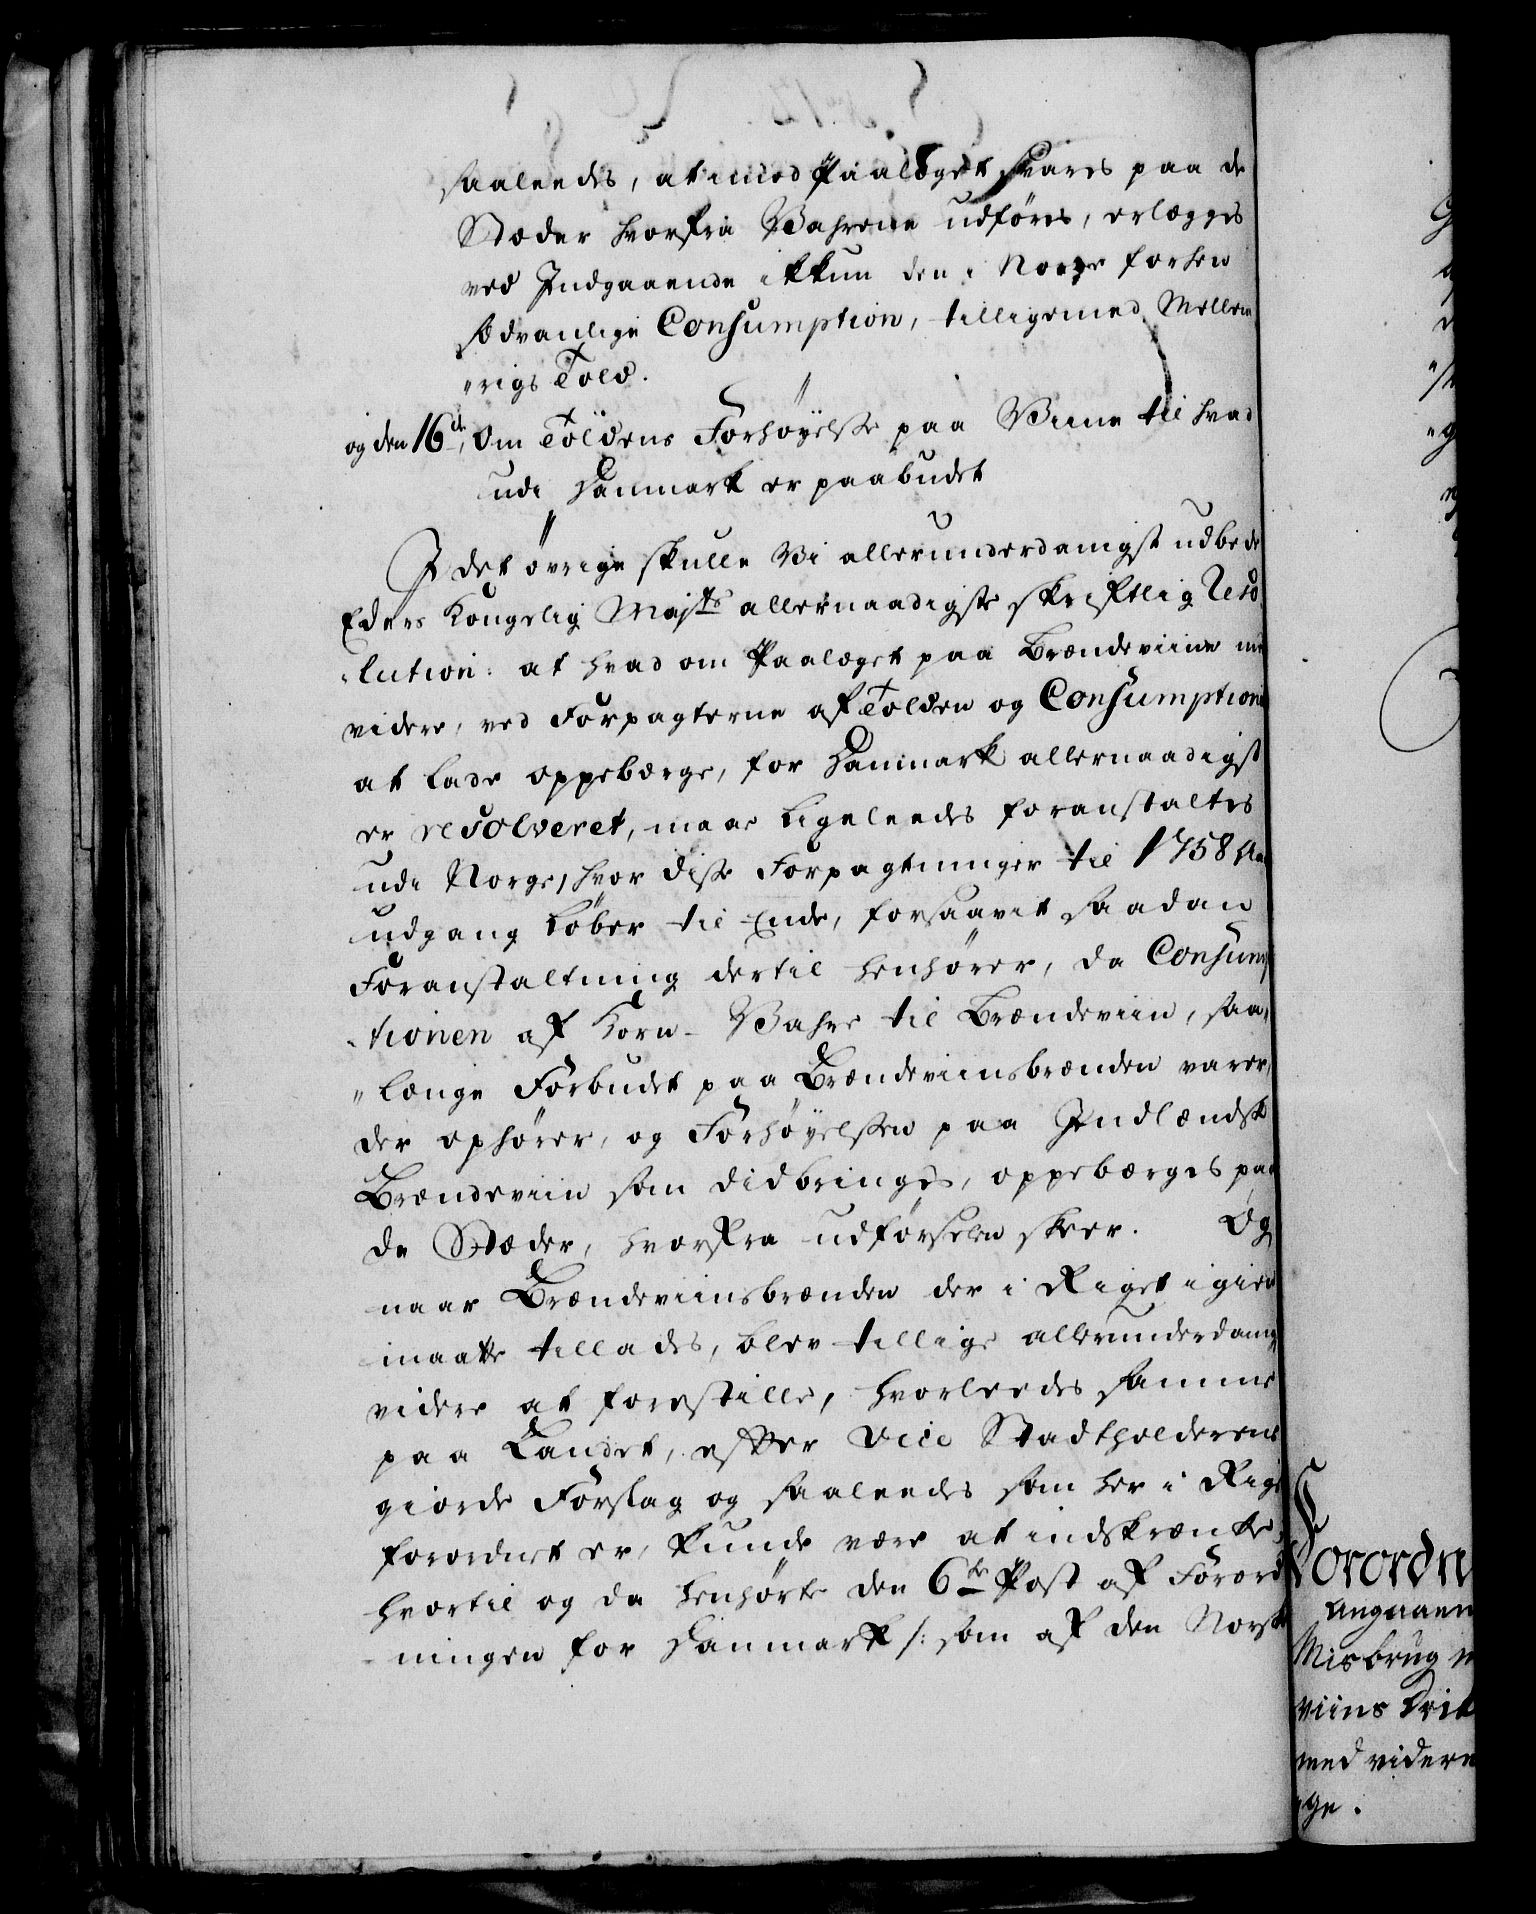 saaleedes, at imod Paalæget svares paa de
Stæder hvorfra Vahrene udføres, erlægges
ved Indgaaende ikkun den i Norge forhen
sædvanlige Consumption, tilligemed Mellem
"rigs Told.
og den 16de, Om Toldens Forhöyelse paa Viine til hvad
udi Danmark er paabudet
I det övrige skulle Vi allerunderdanigst udbede
Eders Kongelig Majts allernaadigste skriftlig Reso
"lution: at hvad om Paalæget paa Brændeviine m
videre, ved Forpagterne af Tolden og Consumptione
at lade oppebærge, for Danmark allernaadigst
er resolveret, maae ligeleedes foranstaltes
udi Norge, hvor disse Forpagtninger til 1758 Aa
udgang löber til Ende, forsaavit saadan
Foranstaltning dertil henhører, da Consump
"tionen af Korn-Vahre til Brændeviin, saa"
"længe Forbudet paa Brændeviinsbrænden varer,
der ophører, og Forhöyelsen paa Indlændsk
Brændeviin som didbringes, oppebærges paa
de Stæder, hvorfra udførselen skeer. Og
naar Brændeviinsbrænden der i Riget igien
maatte tillades, blev tillige allerunderdanig
videre at forestille, hvorleedes samme
paa Landet, efter Vice Stadtholderens
giorde Forslag og saaleedes som her i Rige
forordnet er, kunde være at indskrænke,
hvortil og da henhørte den 6te Post af Forord
"ningen for Danmark /: som af den Norsk
Forordn
angaaen
Misbrug
viins Drik
med videre
ge.